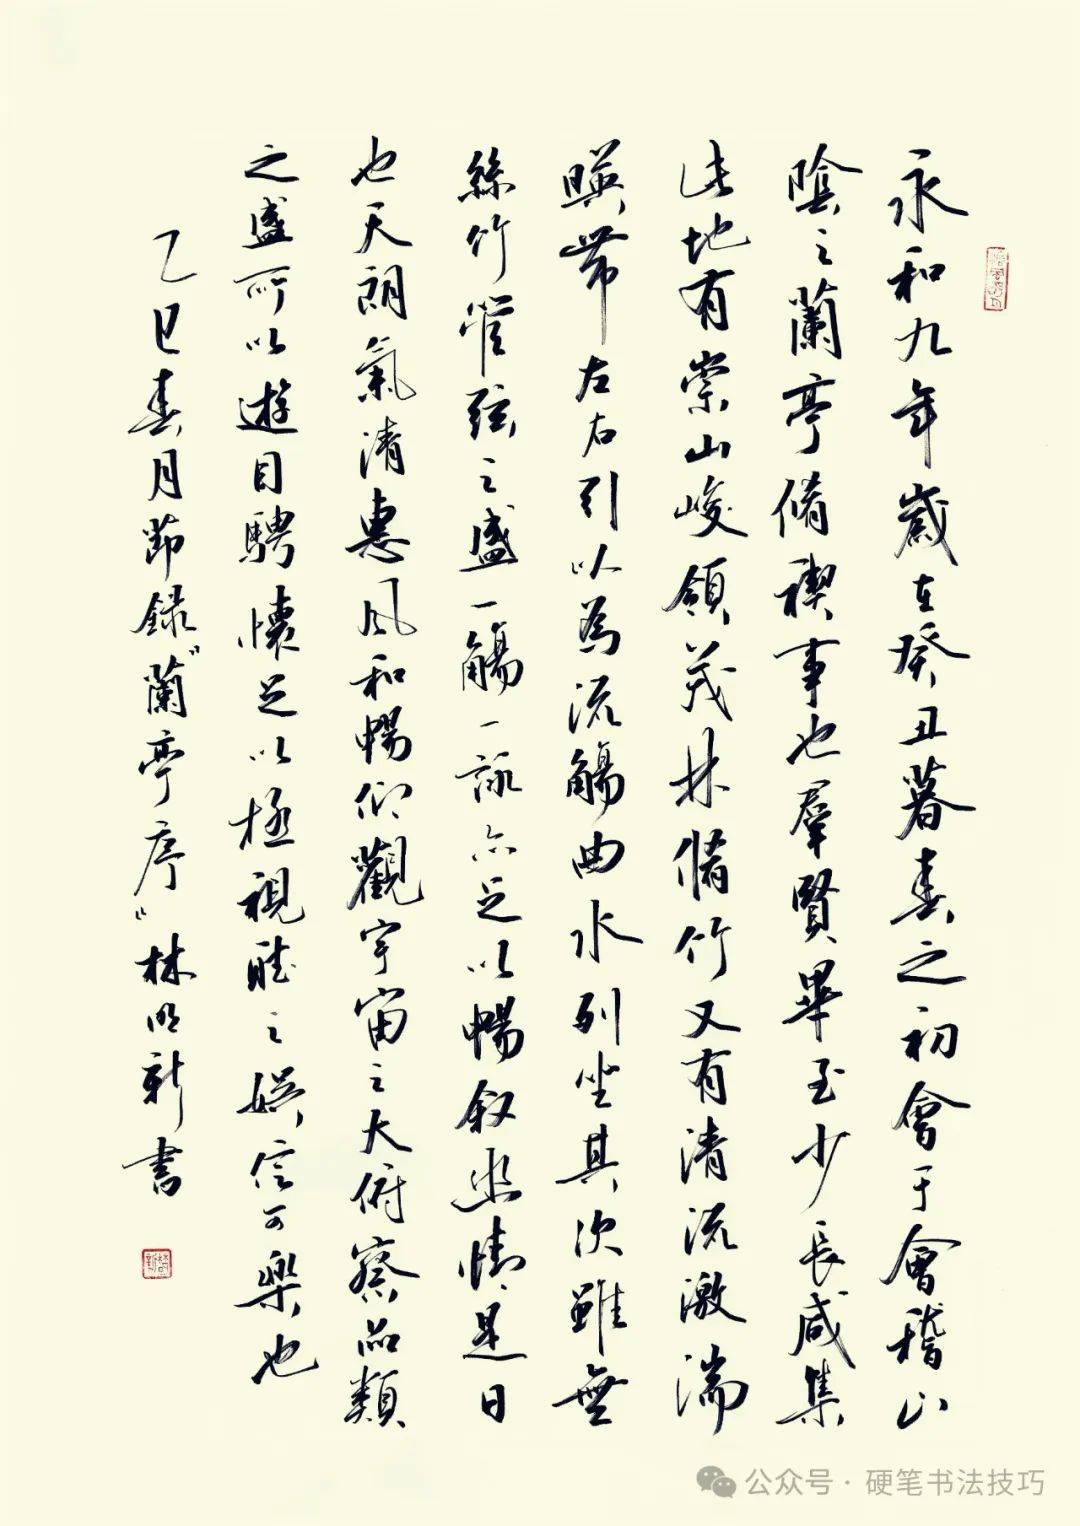 永和九年歲在癸丑暮春之初會于會稽山
陰之蘭亭脩禊事也羣賢畢至少長咸集
此地有崇山峻領茂林脩竹又有清流激湍
暎帶左右引以為流觴曲水列坐其次雖無
絲竹管弦之盛一觴一詠亦足以暢叙幽情是日
也天朗氣清惠風和暢仰觀宇宙之大俯察品類
之盛所以遊目騁懷足以極視聽之娛信可樂也
乙巳春月節録“蘭亭序”林明新書
公众号 · 硬笔书法技巧